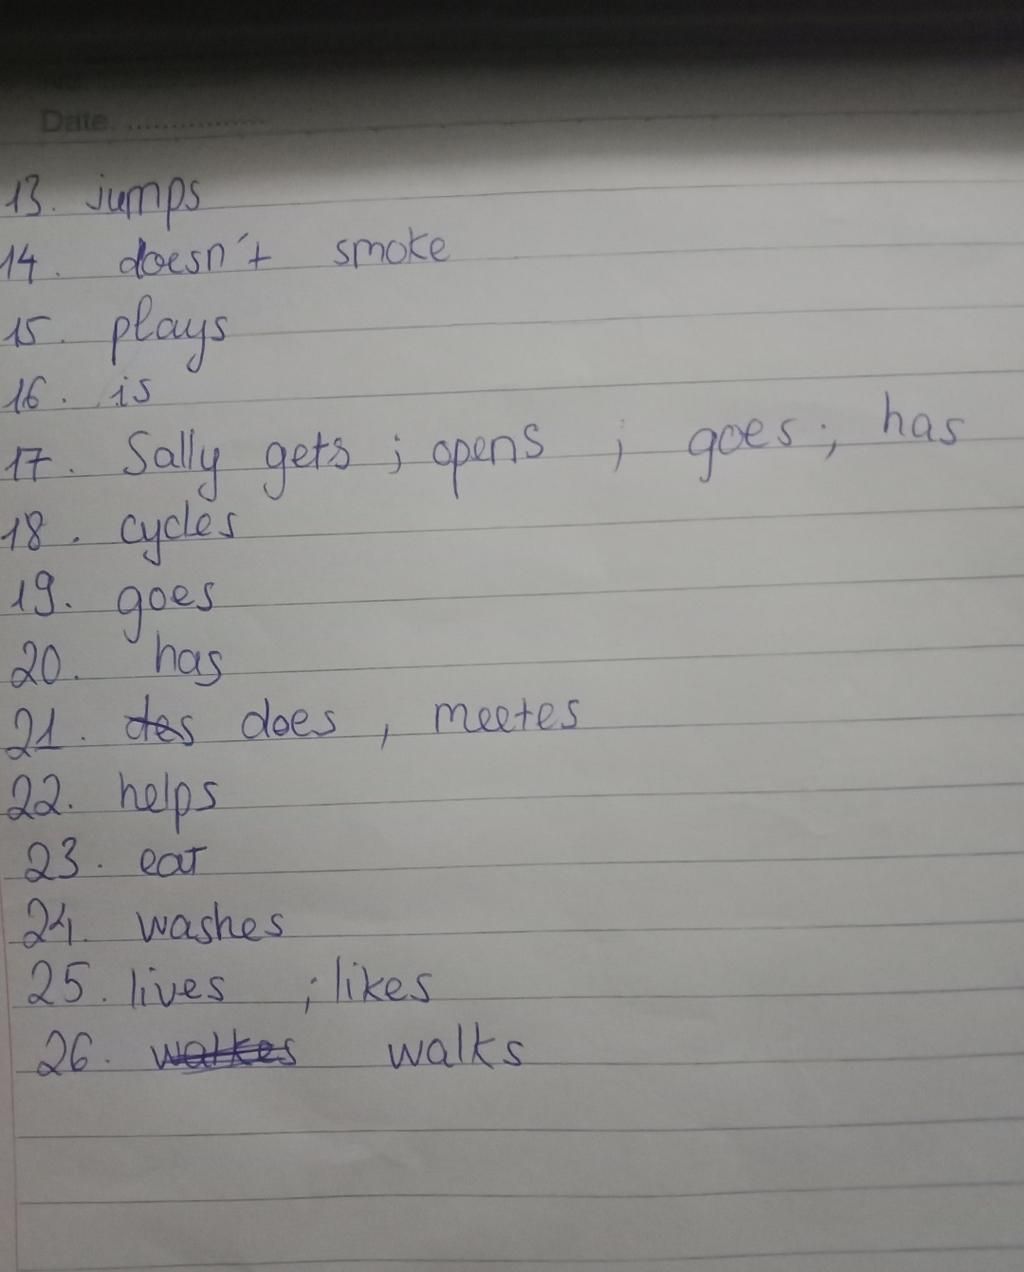 Date. ................
13. jumps
14. doesn't smoke
15. plays
16. is
17. Sally gets ; opens ; goes ; has
18. cycles
19. goes
20. has
21. des does , meetes
22. helps
23. eat
24. washes
25. lives ; likes
26. walkes walks